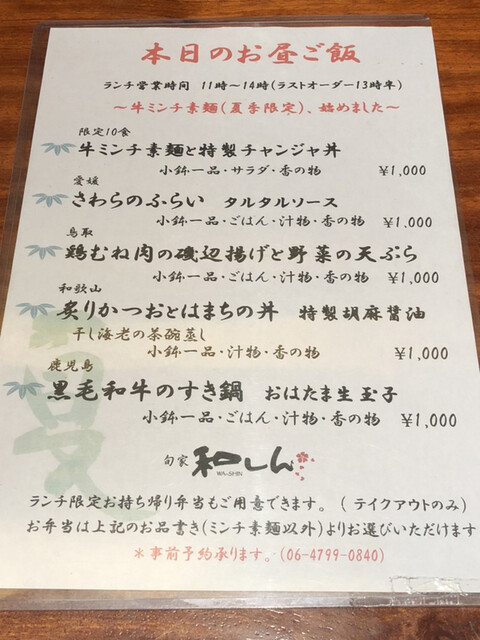 本日のお昼ご飯
ランチ営業時間 11時～14時(ラストオーダー13時半)
～牛ミンチ素麺(夏季限定)、始めました～
限定10食
牛ミンチ素麺と特製チャンジャ丼
小鉢一品・サラダ・香の物 ¥1,000
愛媛
さわらのふらい タルタルソース
小鉢一品・ごはん・汁物・香の物 ¥1,000
鳥取
鶏むね肉の磯辺揚げと野菜の天ぷら
小鉢一品・ごはん・汁物・香の物 ¥1,000
和歌山
炙りかつおとはまちの丼 特製胡麻醤油
干し海老の茶碗蒸し
小鉢一品・汁物・香の物 ¥1,000
鹿児島
黒毛和牛のすき鍋 おはたま生玉子
小鉢一品・ごはん・汁物・香の物 ¥1,000
旬家 和しん
WA-SHIN
ランチ限定お持ち帰り弁当もご用意できます。（テイクアウトのみ)
お弁当は上記のお品書き(ミンチ素麺以外)よりお選びいただけます
＊事前予約承ります。(06-4799-0840)